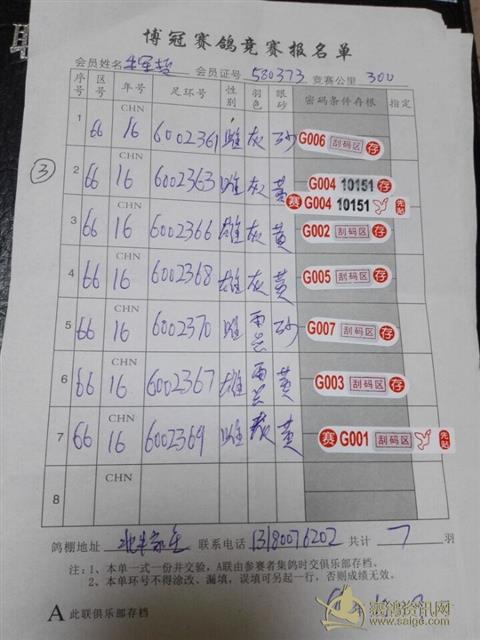 博冠赛鸽竞赛报名单
会员姓名 会员证号 580373 竞赛公里 300
序号 区号 年号 足环号 性别 羽色 眼砂 密码条件存根 指定
1 66 CHN 16 6002361 雌 灰 砂 G006 刮码区 存
③
2 66 CHN 16 6002363 雌 灰 黄 G004 10151 存
赛 G004 10151
3 66 CHN 16 6002366 雄 灰 黄 G002 刮码区 存
4 66 CHN 16 6002368 雄 灰 黄 G005 刮码区 存
5 66 CHN 16 6002370 雌 雨点 砂 G007 刮码区 存
6 66 CHN 16 6002367 雄 雨点 黄 G003 刮码区 存
7 66 CHN 16 6002369 雌 灰 黄 赛 G001 刮码区
8 CHN
鸽棚地址 联系电话 13180076202 共计 7 羽
注：1、本单一式一份并交验，A联由参赛者集鸽时交俱乐部存档。
2、本单环号不得涂改、漏填，误填可另起一行，否则成绩无效。
A 此联俱乐部存档
赛鸽资讯网
www.saige.com